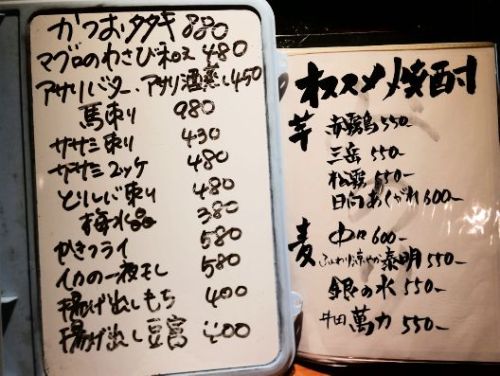 かつおタタキ 880
マグロのわさび和え 480
アサリバター、アサリ酒蒸し 450
馬刺り 980
ササミ刺り 430
ササミユッケ 480
とりレバ刺り 480
梅水晶 380
かきフライ 580
イカの一夜干し 580
揚げ出しもち 400
揚げ出し豆富 400
オススメ焼酎
芋 赤霧島 550-
三岳 550-
松露 550-
日向あくがれ 600-
麦 中々 600-
ふんわり涼やか泰明 550-
銀の水 550-
萬力 550-